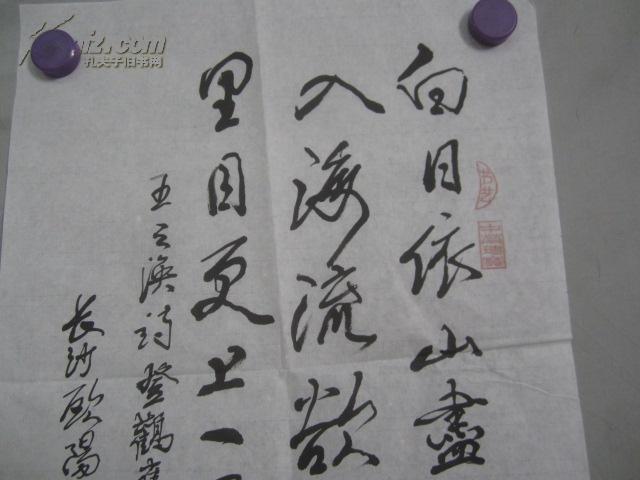 白日依山盡
入海流欲
里目更上一
王之渙詩登鸛雀
長沙歐陽
孔夫子旧书网